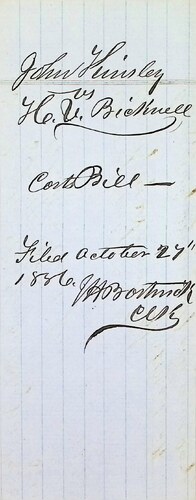 John Kinsley
vs
H. V. Bicknell
Cost Bill —
Filed October 27"
1886.
JH Bostwick
Clk